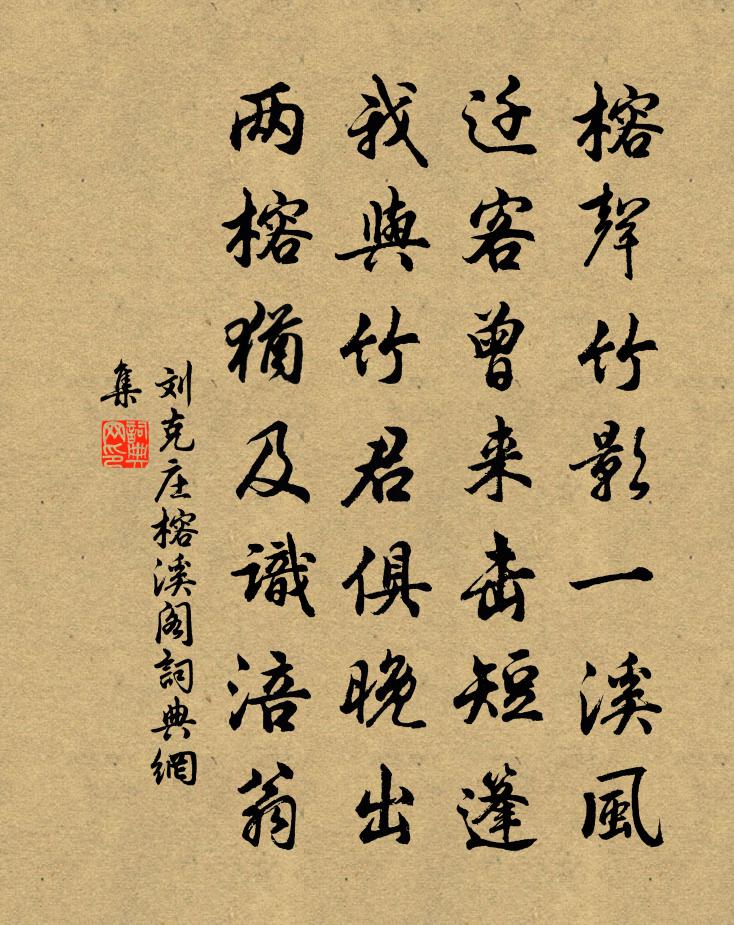 榕聲竹影一溪風
迁客曾来击短篷
我與竹君俱晚出
两榕猶及識涪翁
刘克庄榕溪阁詞典網
集
詞典
网印